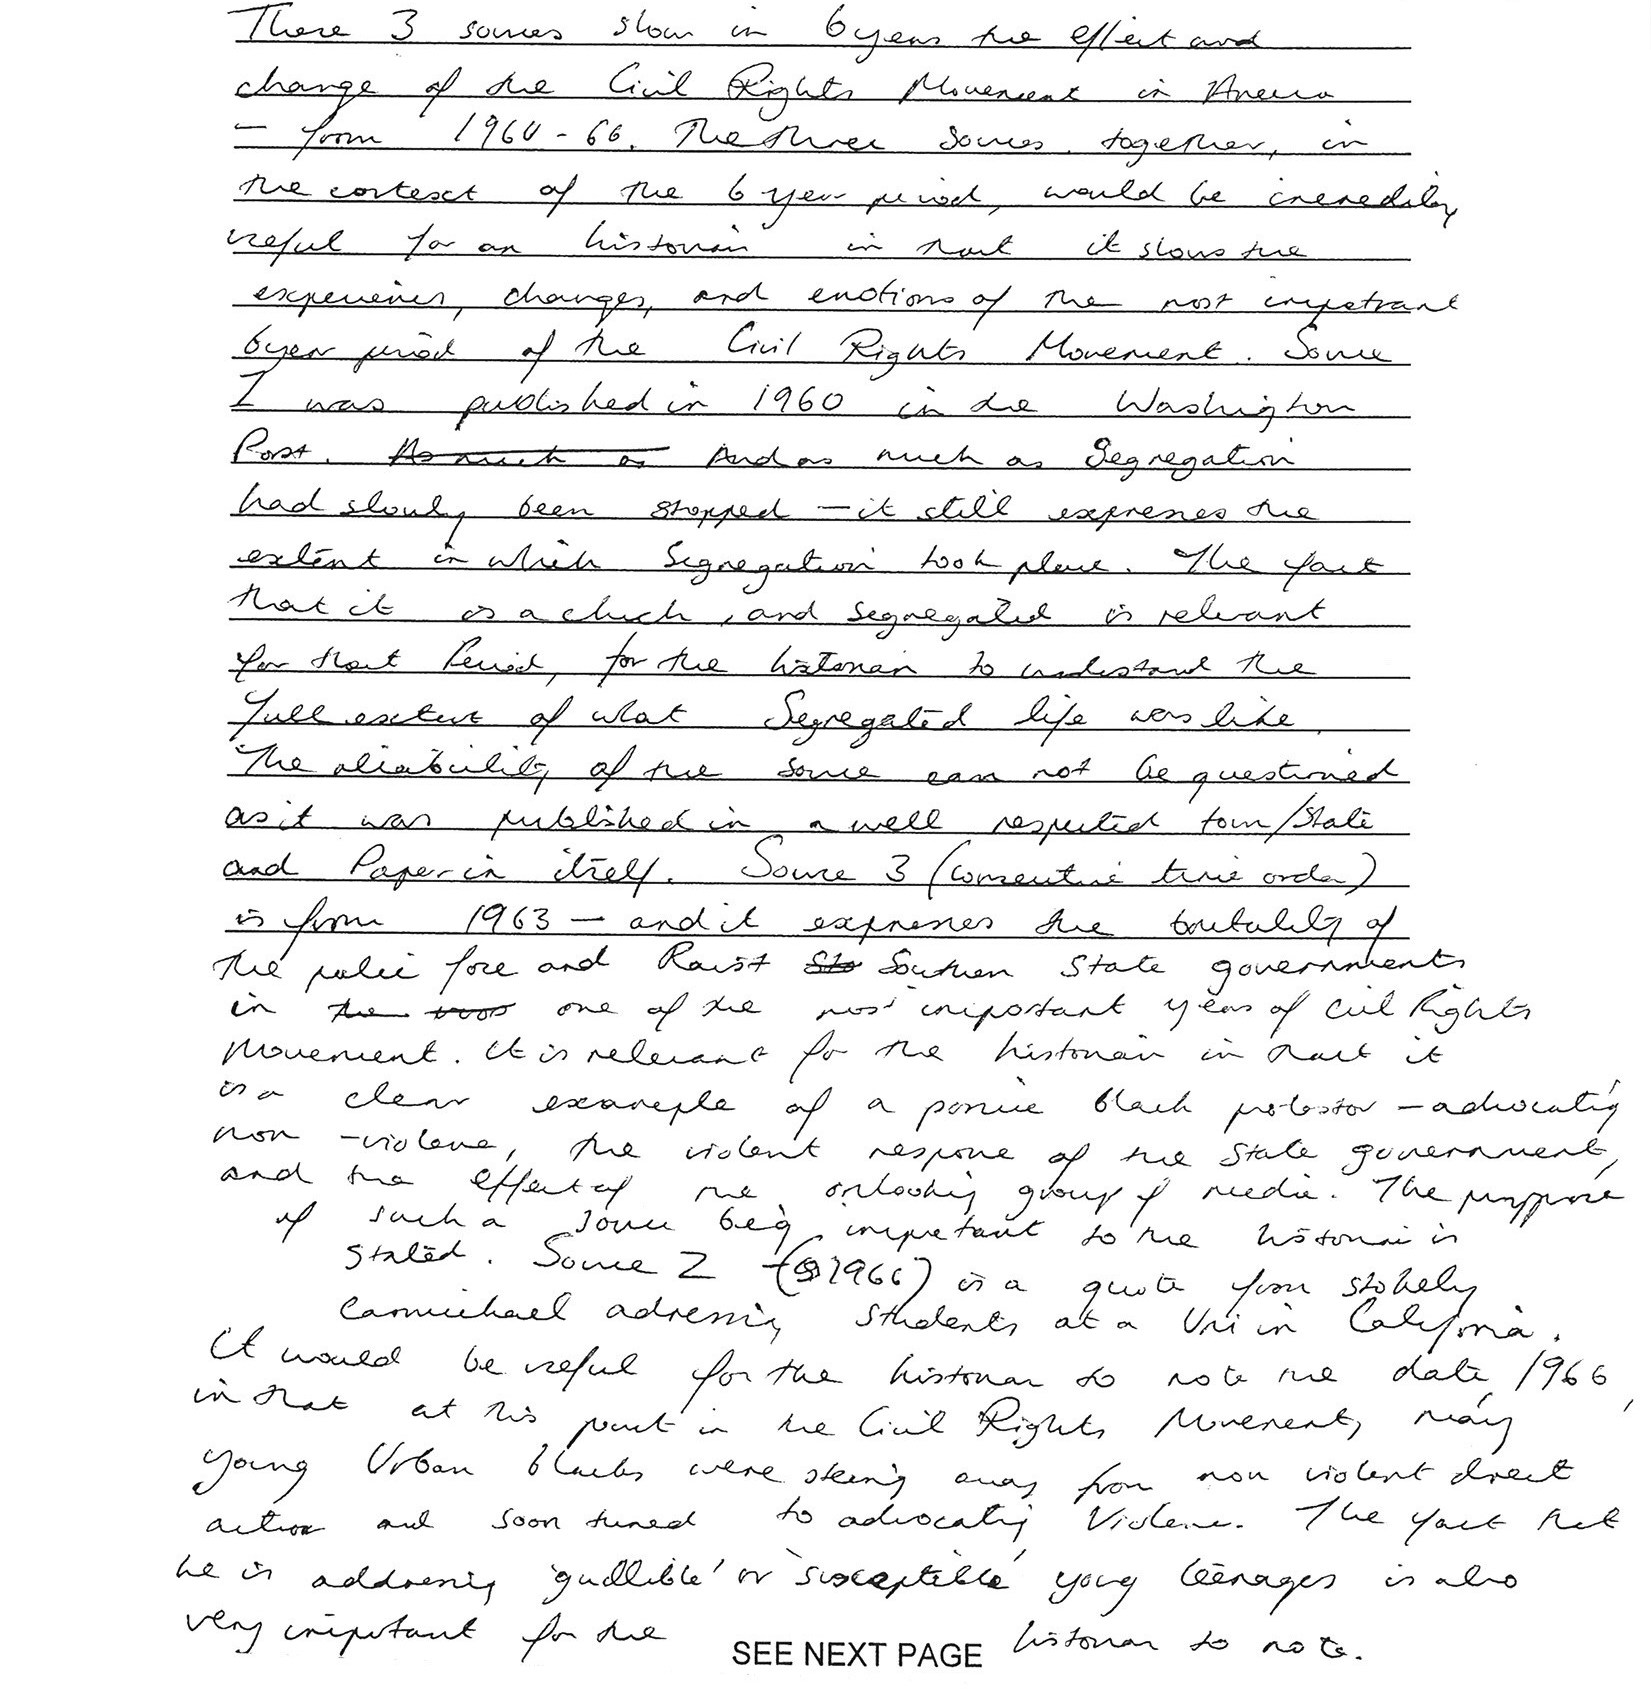 These 3 sources show in 6 years the effect and
change of the Civil Rights Movement in America
- from 1960-66. The three sources, together, in
the context of the 6 year period, would be incredibly
useful for an historian in that it shows the
experiences, changes, and emotions of the most important
6 year period of the Civil Rights Movement. Source
1 was published in 1960 in the Washington
Post. As much as And as much as Segregation
had slowly been stopped - it still expresses the
extent in which Segregation took place. The fact
that it is a church, and segregated is relevant
for that Period, for the historian to understand the
full extent of what Segregated life was like.
The reliability of the source can not be questioned
as it was published in a well respected town/State
and Paper in itself. Source 3 (consecutive time order)
is from 1963 - and it expresses the brutality of
the police force and Racist Sto Southern State governments
in the one of the most important years of Civil Rights
Movement. It is relevant for the historian in that it
is a clear example of a passive black protestor - advocating
non-violence, the violent response of the State government,
and the effect of the onlooking group of media. The purpose
of such a source being important to the historian is
stated. Source 2 (1966) is a quote from Stokely
Carmichael adressing students at a Uni in California.
It would be useful for the historian to note the date 1966,
in that at this point in the Civil Rights Movement, many
young Urban blacks were steering away from non violent direct
action and soon turned to advocating Violence. The fact that
he is addressing 'gullible' or 'susceptible' young teenagers is also
very important for the historian to note.
SEE NEXT PAGE